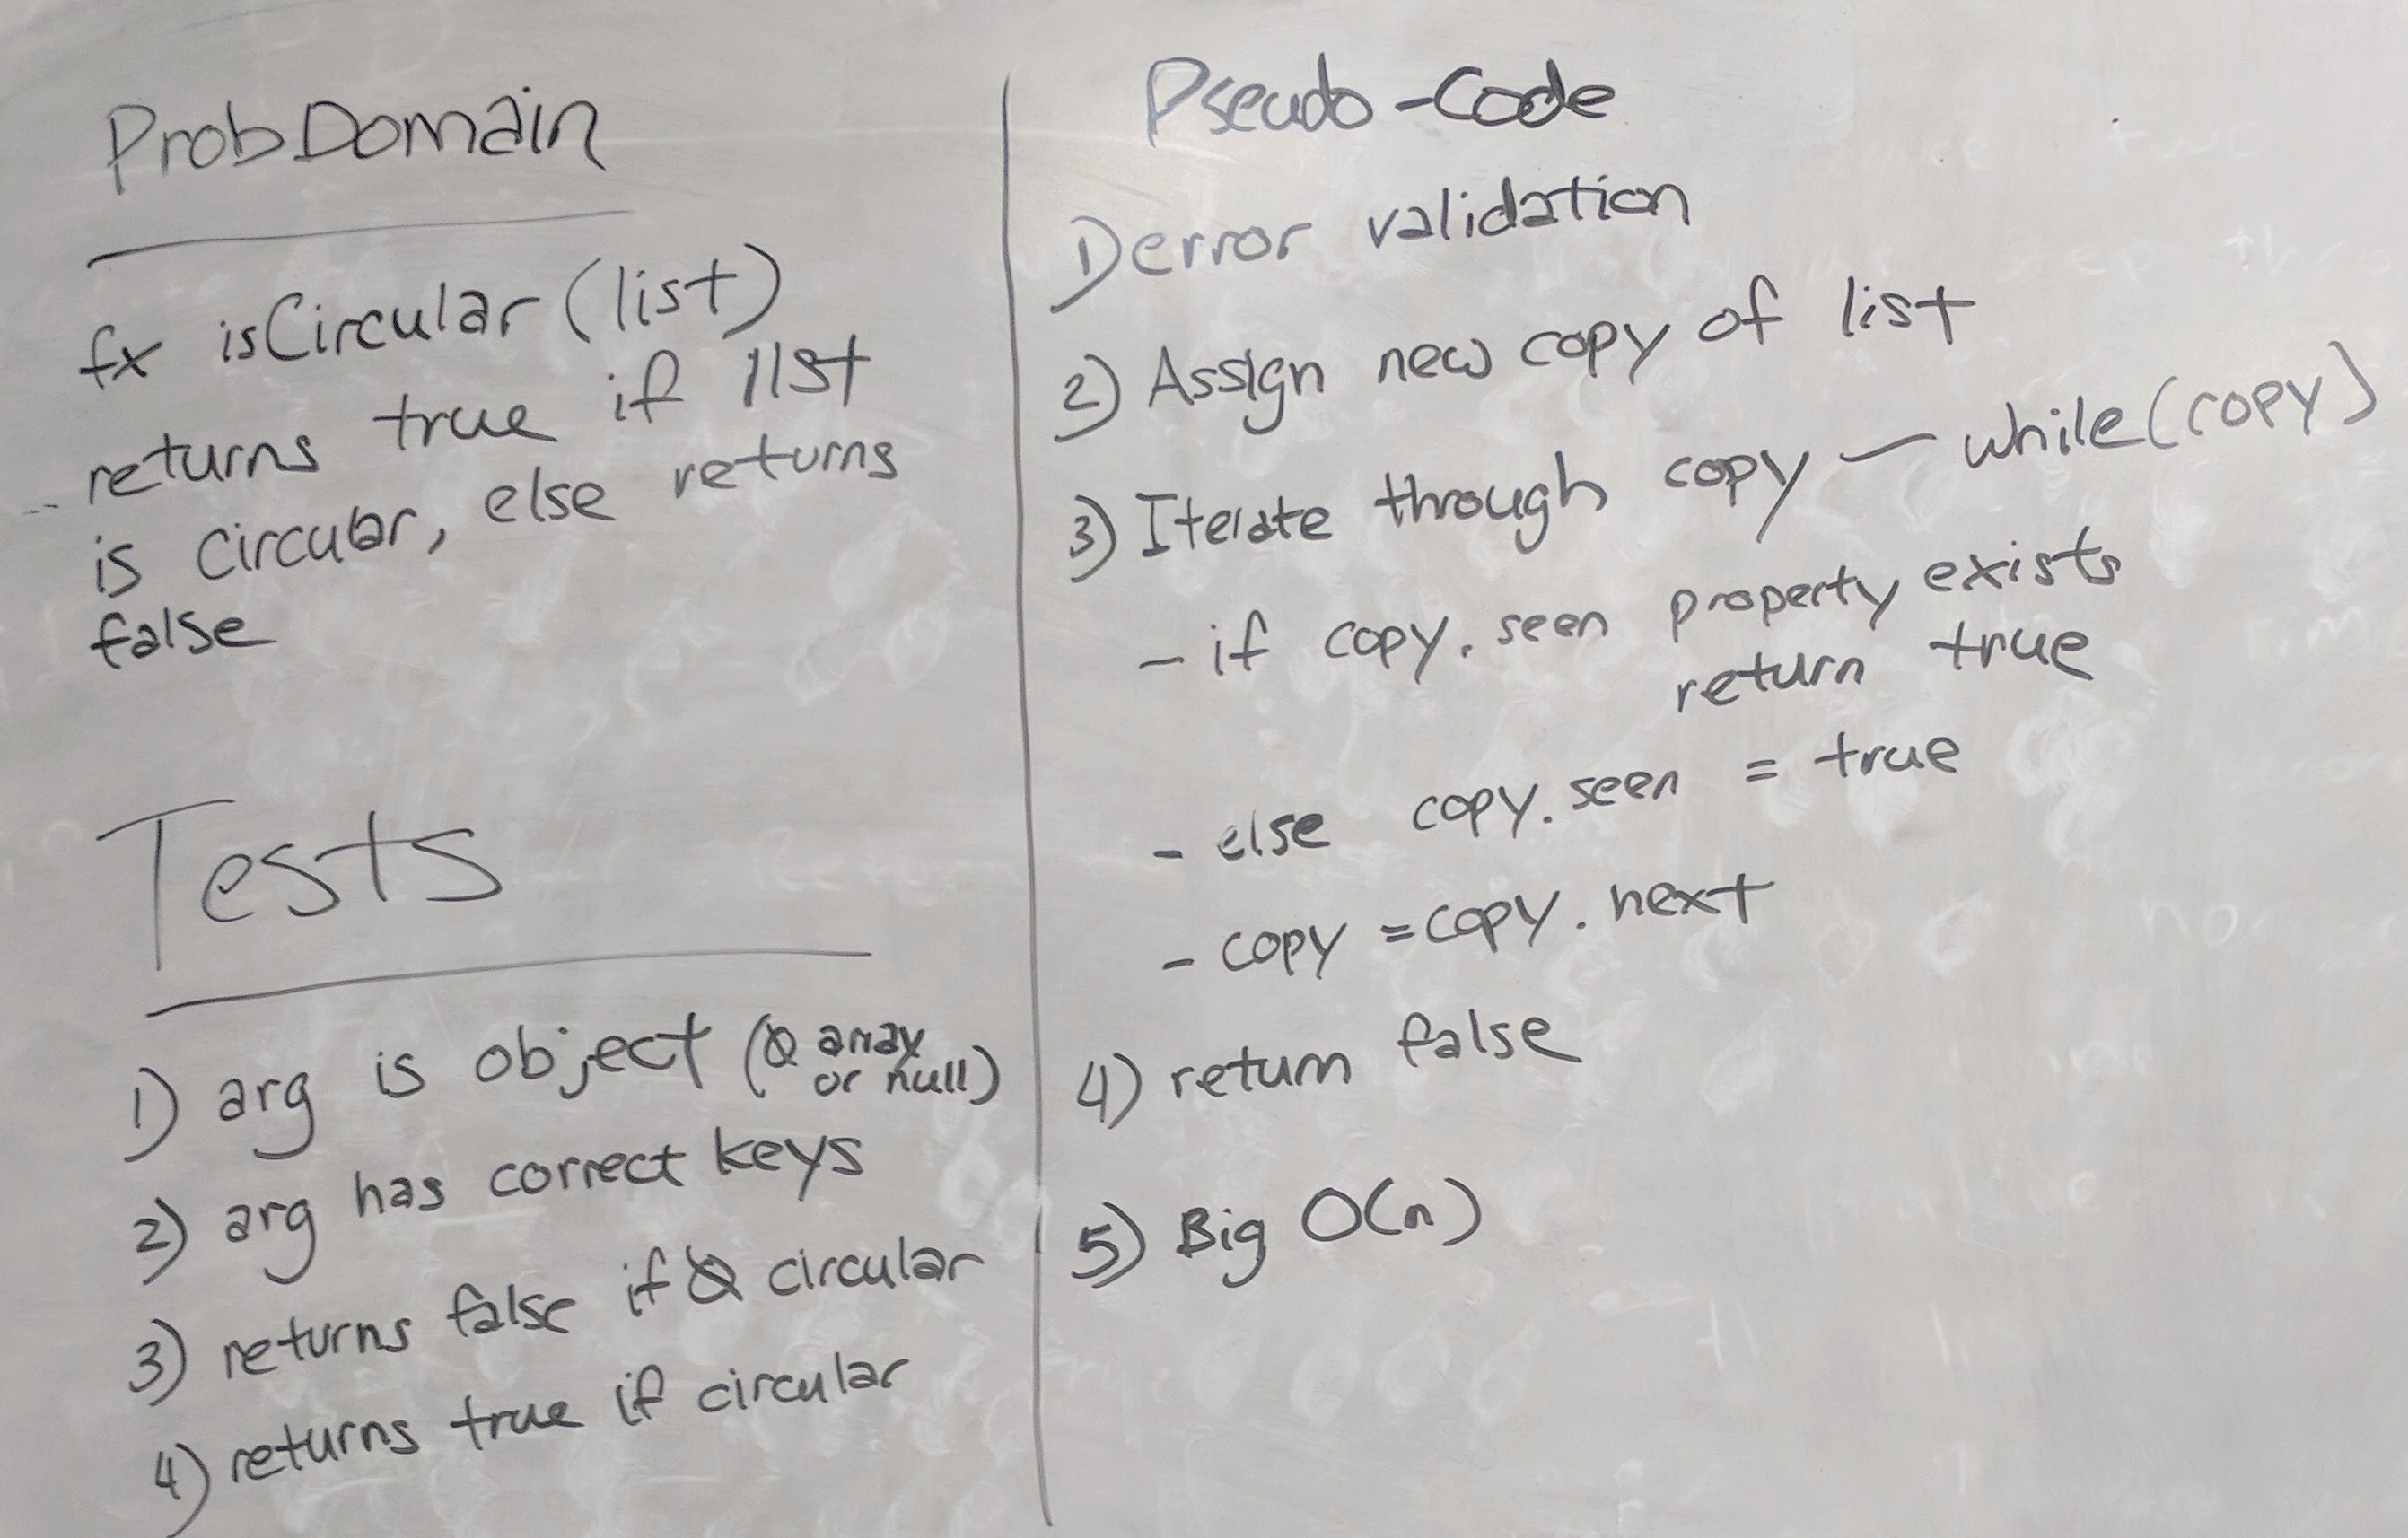 Prob Domain
fx isCircular (list)
returns true if list
is circular, else returns
false
Tests
1) arg is object (Ø array
or null)
2) arg has correct keys
3) returns false if Ø circular
4) returns true if circular
Pseudo-Code
1) error validation
2) Assign new copy of list
3) Iterate through copy — while(copy)
- if copy.seen property exists
return true
- else copy.seen = true
- copy = copy.next
4) return false
5) Big O(n)